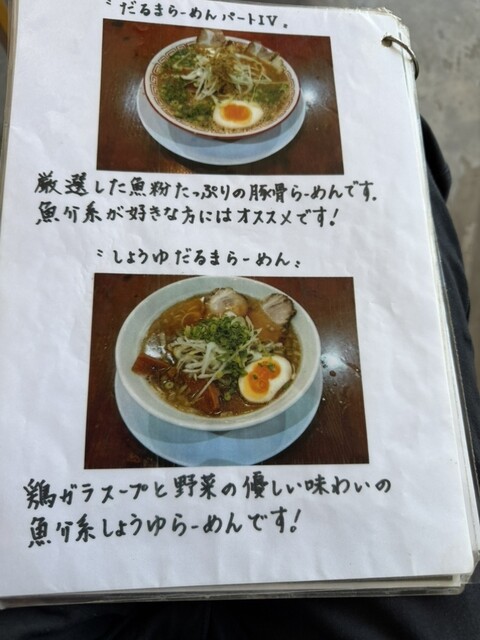 〝だるまらーめんパートⅣ〟
厳選した魚粉たっぷりの豚骨らーめんです。
魚介系が好きな方にはオススメです!
〝しょうゆだるまらーめん〟
鶏ガラスープと野菜の優しい味わいの
魚介系しょうゆらーめんです!